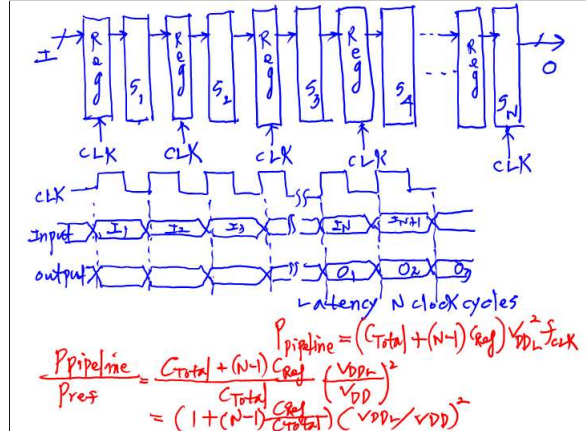 I Reg S1 Reg S2 Reg S3 Reg S4 Reg SN O
CLK CLK CLK CLK CLK
CLK
Input I1 I2 I3 IN IN+1
output O1 O2 O3
Latency N clock cycles
Ppipeline = (CTotal + (N-1) CReg) VDDL² fCLK
Ppipeline / Pref = (CTotal + (N-1) CReg) / CTotal (VDDL / VDD)²
= (1 + (N-1) CReg / CTotal) (VDDL/VDD)²